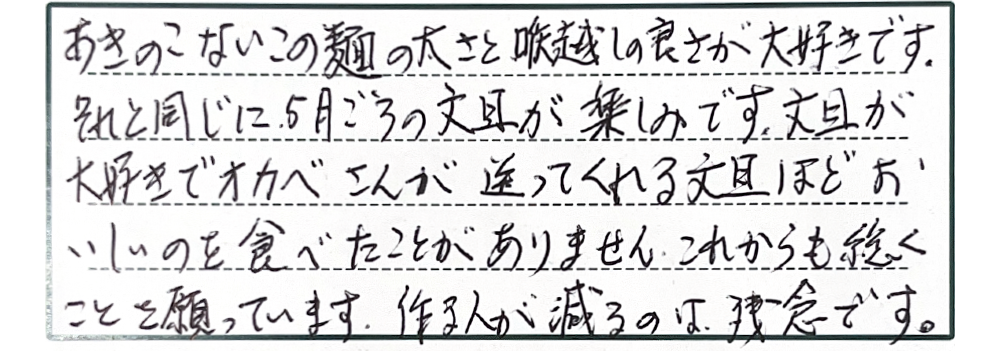 あきのこないこの麺の太さと喉越しの良さが大好きです。
それと同じに、5月ごろの文旦が楽しみです。文旦が
大好きでオカベさんが送ってくれる文旦ほどお
いしいのを食べたことがありません。これからも続く
ことを願っています。作る人が減るのは、残念です。